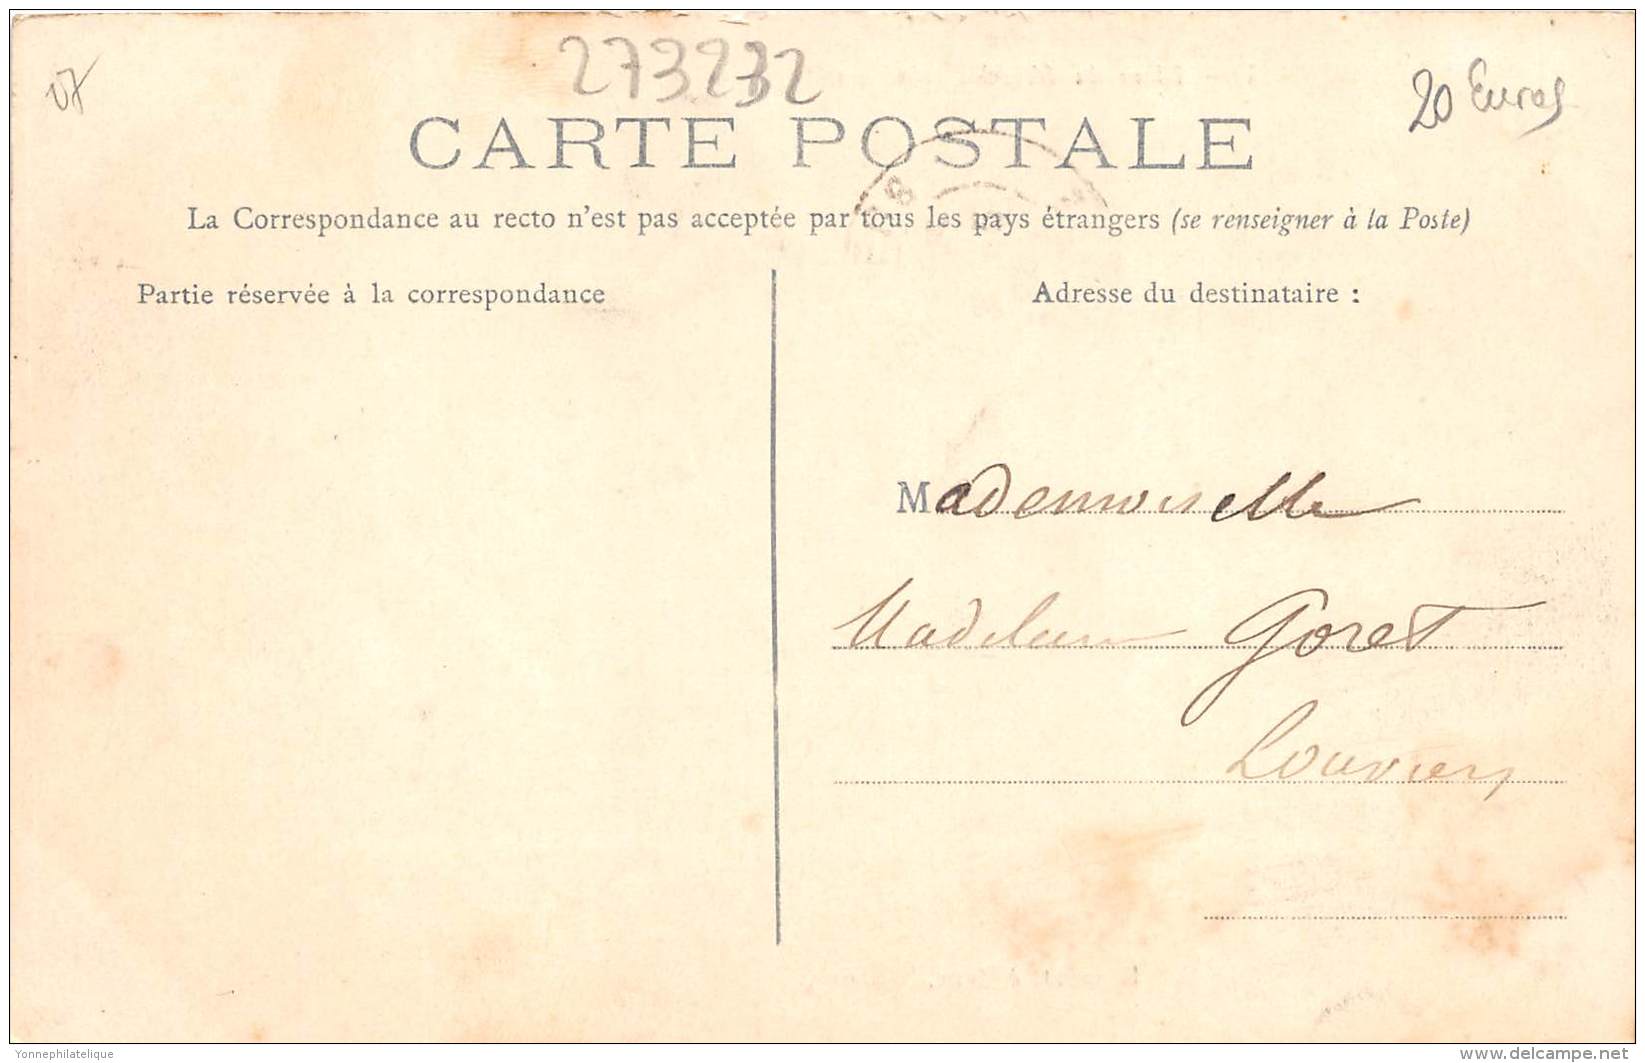 07
273232
20 Euros
CARTE POSTALE
La Correspondance au recto n'est pas acceptée par tous les pays étrangers (se renseigner à la Poste)
Partie réservée à la correspondance
Adresse du destinataire :
Mademoiselle
Madeleine Goret
Louviers
Yonnephilatelique
www.delcampe.net